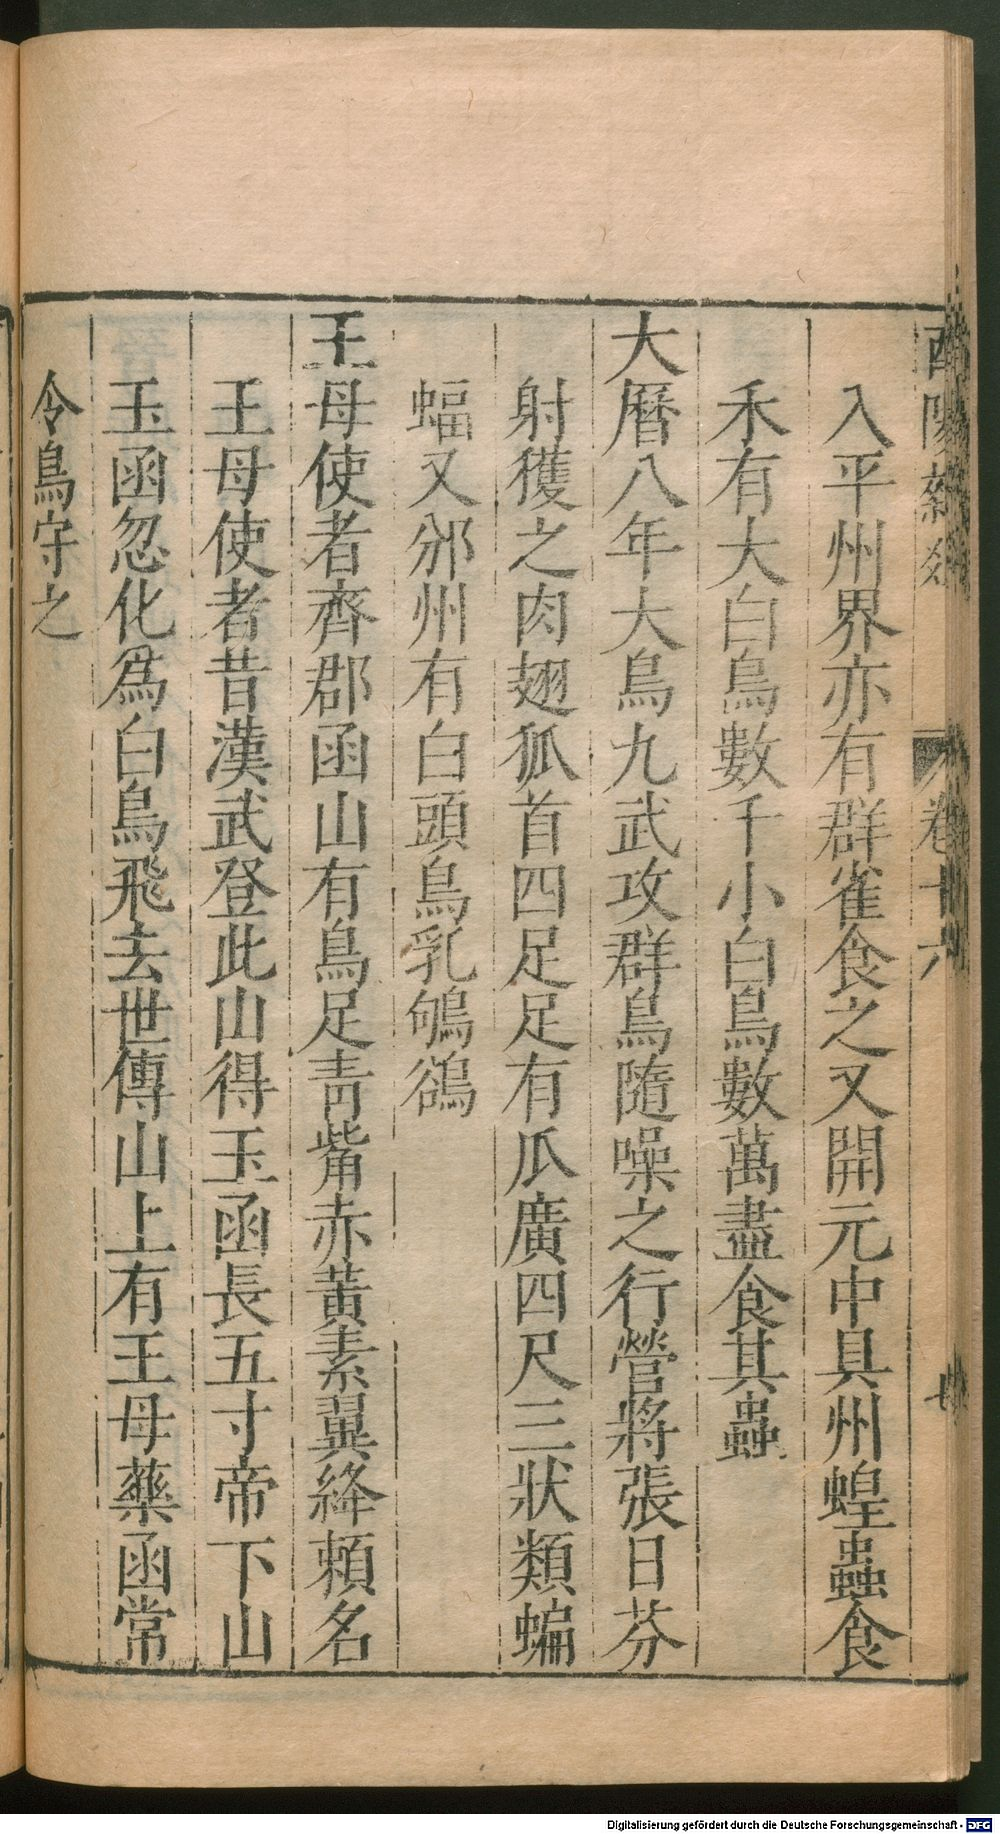 酉陽雜俎 卷十六
入平州界亦有群雀食之又開元中具州蝗蟲食
禾有大白鳥數千小白鳥數萬盡食其蟲
大曆八年大鳥九武攻群鳥隨噪之行營將張日芬
射獲之肉翅狐首四足足有瓜廣四尺三狀類蝙
蝠又邠州有白頭鳥乳鴝鵒
王母使者齊郡函山有鳥足青觜赤黃素翼絳頼名
王母使者昔漢武登此山得玉函長五寸帝下山
玉函忽化爲白鳥飛去世傳山上有王母藥函常
令鳥守之
Digitalisierung gefördert durch die Deutsche Forschungsgemeinschaft - DFG